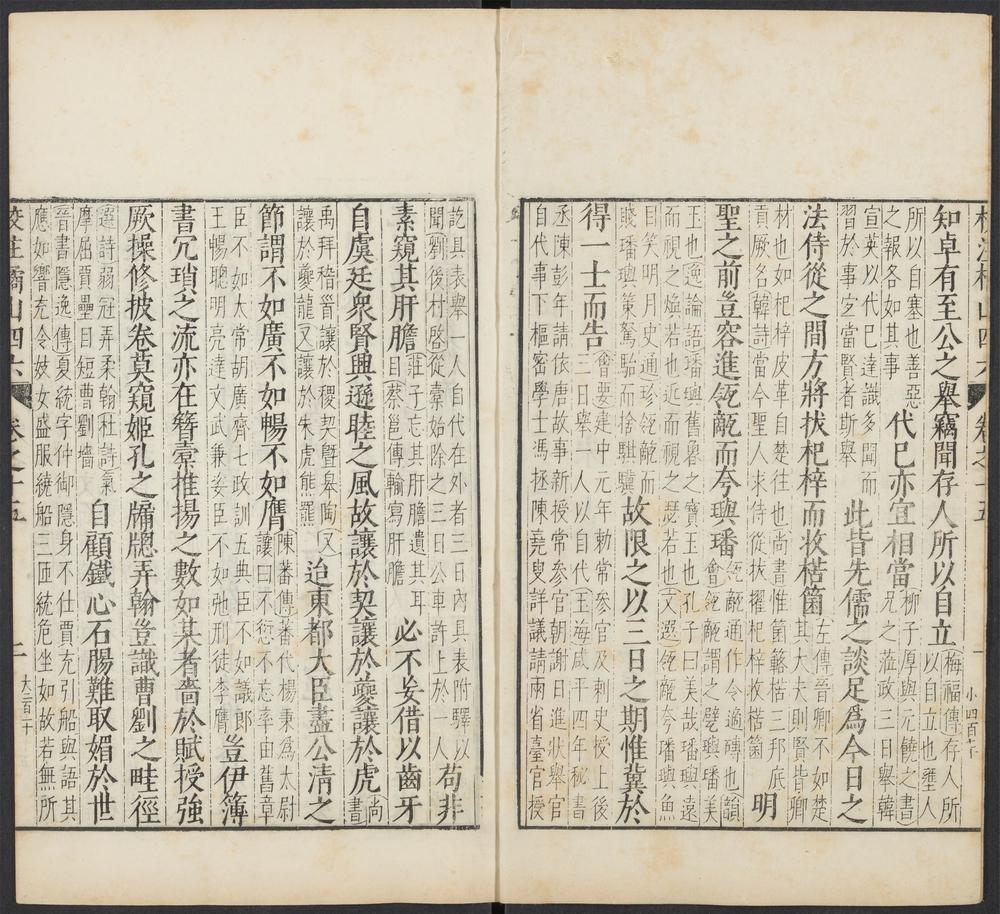 校注橘山四六 卷之十五 一 小四百七
知卓有至公之舉竊聞存人所以自立
梅福傳存人所
以自立也壅人
所以自塞也善惡
之報各如其事
代已亦宜相當
柳子厚與元饒之書
兄之蒞政三日舉韓
宣英以代已達識多聞而
習於事宜當賢者斯舉
此皆先儒之談足爲今日之
法侍從之間方將拔杞梓而收楛箘
左傳晉卿不如楚
其大夫則賢皆卿
材也如杞梓皮革自楚往也尚書惟箘簵楛三邦厎
貢厥名韓詩當今聖人來侍從狀擢杞梓收楛箘
明
聖之前豈容進瓴甋而今璵璠
瓴甋通作令適磚也韻
會瓴甋謂之甓璵璠美
玉也逸論語璠璵舊魯之寶玉也孔子曰美哉璠璵遠
而視之煥若也近而視之瑟若也文選瓴甋今璠璵魚
目笑明月史通珍瓴甋而
賤璠璵策駑駘而捨騏驥
故限之以三日之期惟冀於
得一士而告
會要建中元年勅常參官及刺史授上後
三日舉一人以自代玉海咸平四年秘書
丞陳彭年請依唐故事新授常參官朝謝日進狀舉官
自代事下樞密學士馮拯陳堯叟詳議請兩省臺官授
訖具表舉一人自代在外者三日內具表附驛以
聞劉後村啓從槖始除之三日公車許上於一人
苟非
素窺其肝膽
莊子忘其肝膽遺其耳
目蔡邕傳輸寫肝膽
必不妄借以齒牙
自虞廷衆賢興遜睦之風故讓於契讓於夔讓於虎
尚
書
禹拜稽首讓於稷契暨皋陶又
讓於夔龍又讓於朱虎熊羆
迨東都大臣盡公清之
節謂不如廣不如暢不如膺
陳蕃傳蕃代楊秉爲太尉
讓曰不愆不忘率由舊章
臣不如太常胡廣齊七政訓五典臣不如議郎
王暢聰明亮達文武兼姿臣不如弛刑徒李膺
豈伊簿
書冗瑣之流亦在簪槖推揚之數如某者嗇於賦授強
厥操修披卷莫窺姬孔之牖牕弄翰豈識曹劉之畦徑
選詩弱冠弄柔翰杜詩氣
摩屈賈壘目短曹劉墻
自顧鐵心石腸難取媚於世
晉書隱逸傳夏統字仲御隱身不仕賈充引船與語其
應如響充令妓女盛服繞船三匝統危坐如故若無所
校註橘山四六 卷之十五 二 大三百二十